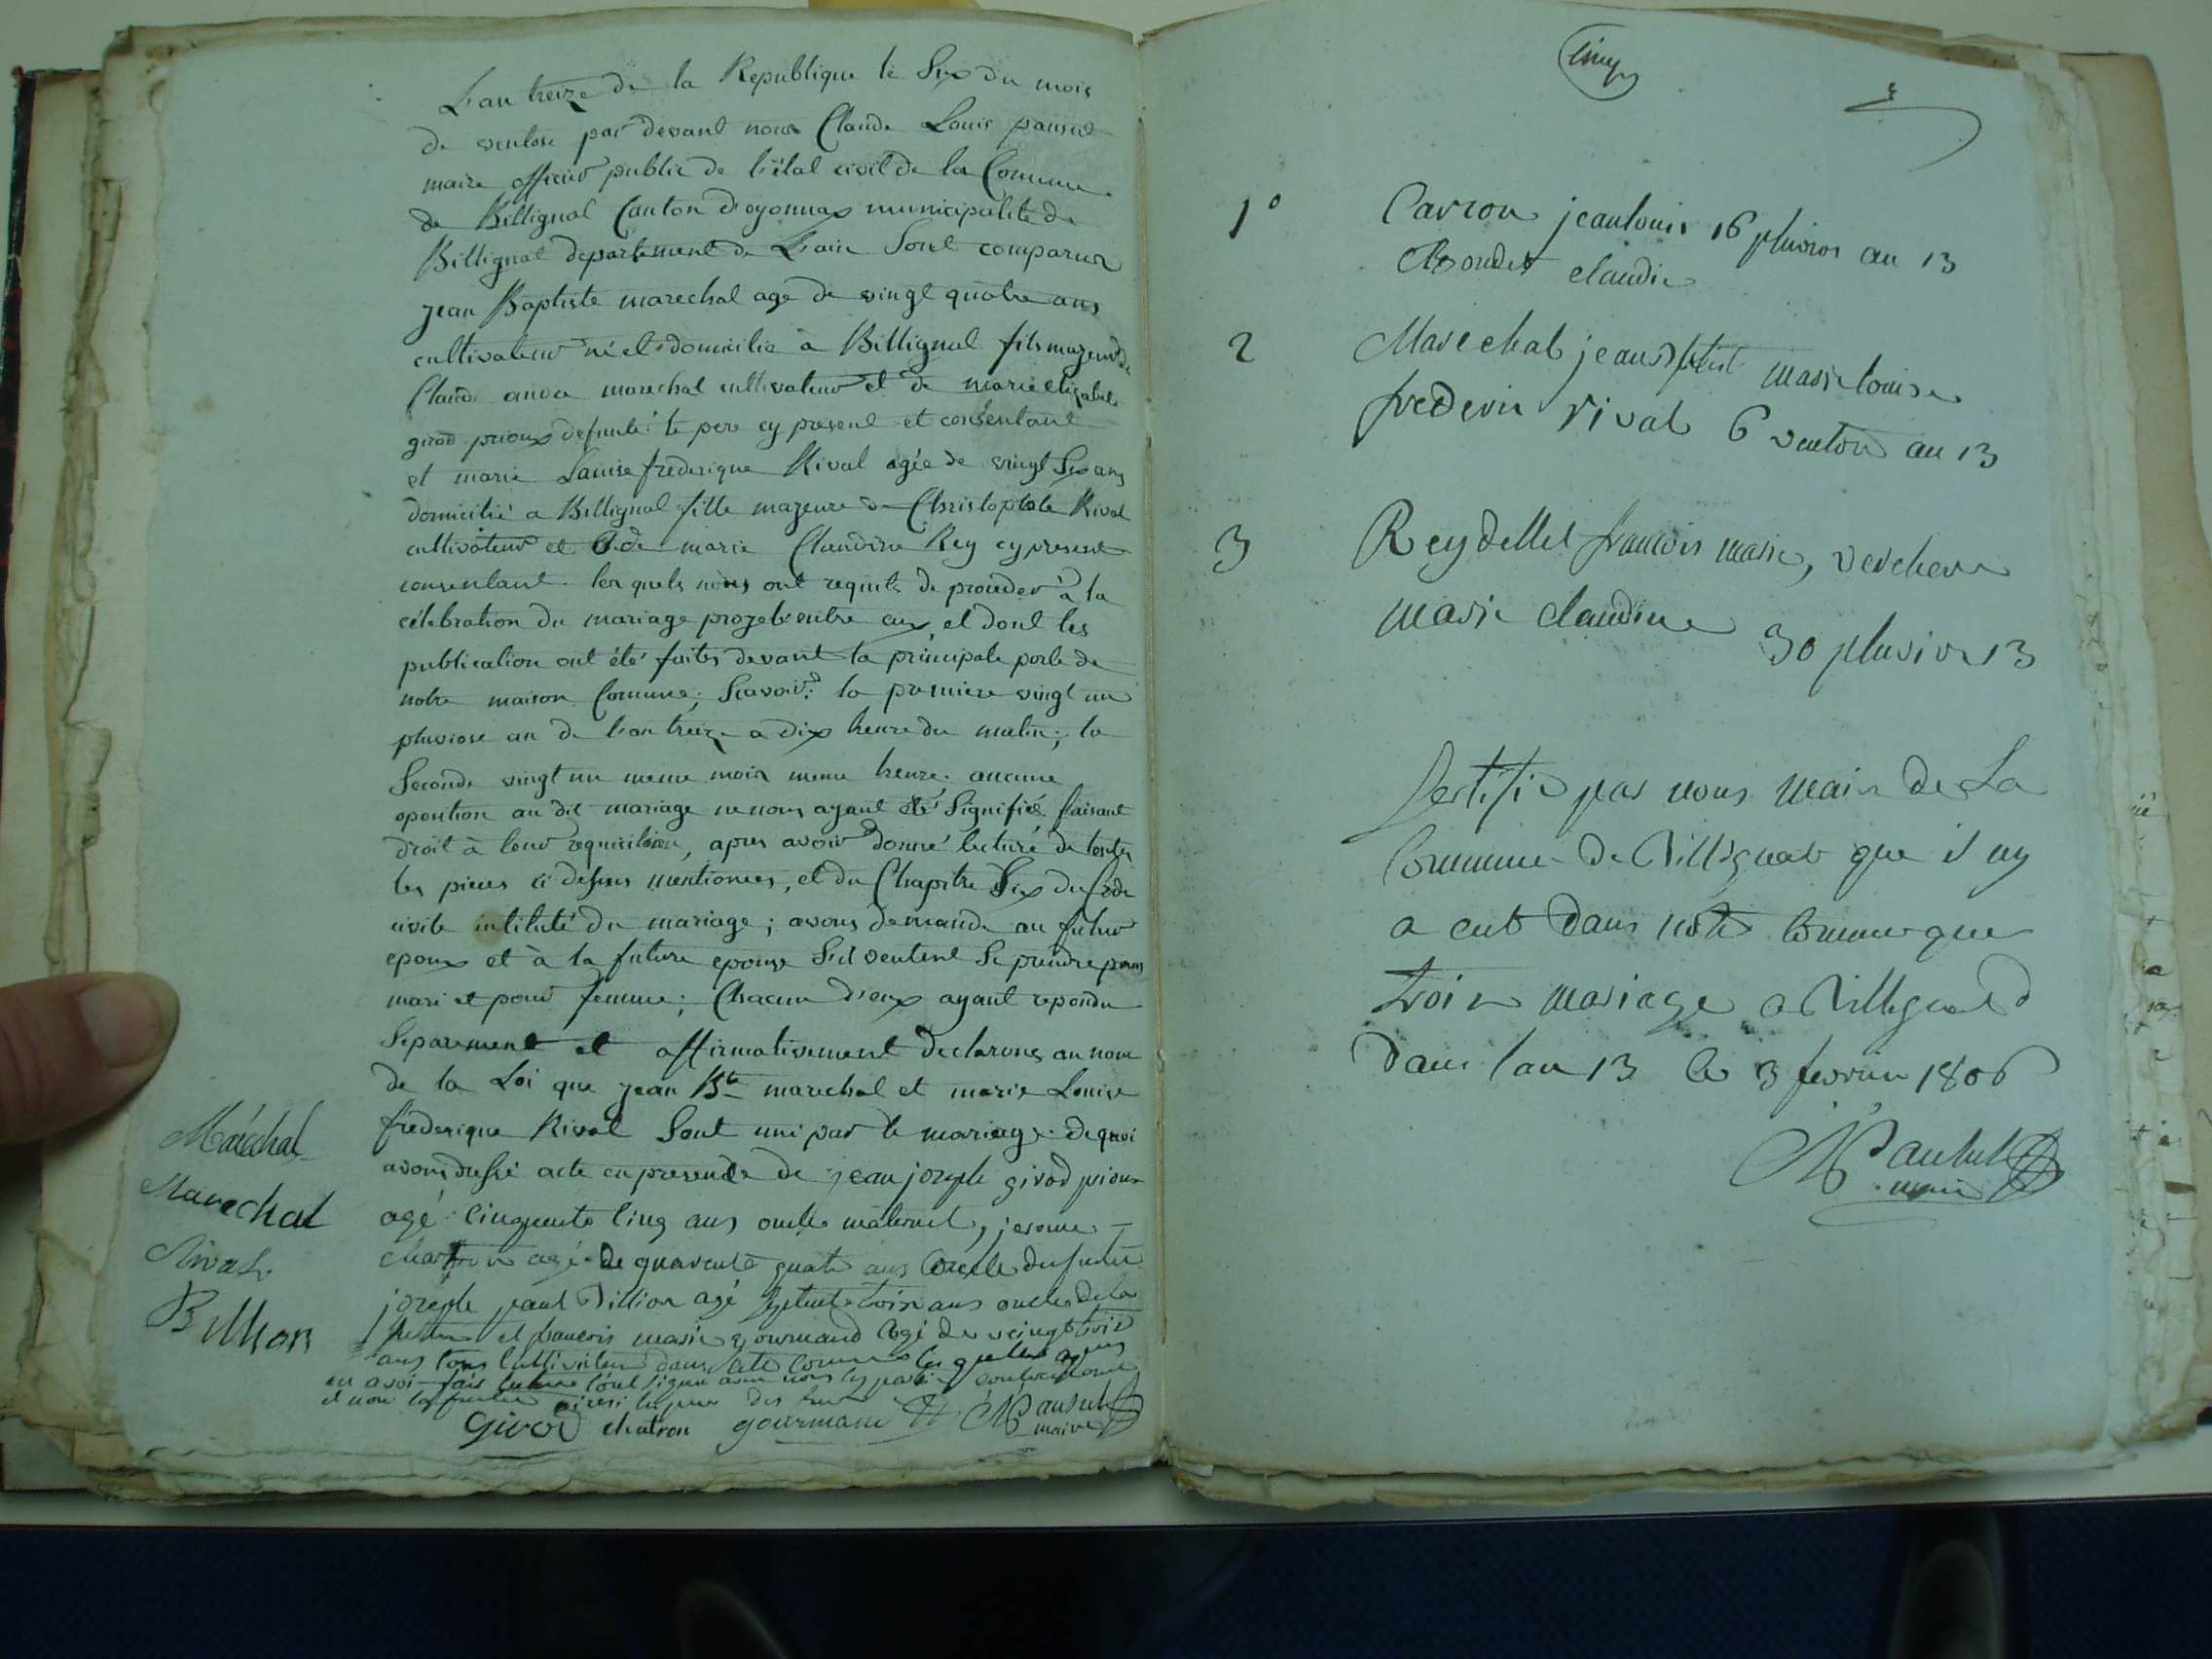 L'an treize de la Republique le Six du mois
de ventose par devant nous Claude Louis pansut
maire officier public de l'état civil de la Comune
de Billignat Canton d'oyonnax municipalite de
Billignat departement de L'ain Sont comparus
jean Baptiste marechal age de vingt quatre ans
cultivateur né et domicilie a Billignat fils majeur de
Claude marechal cultivateur et de marie elizabet
girod prioux defunte le pere cy present et consentant
et marie Louise frederique Rival agée de vingt Six ans
domicilié a Billignat fille majeure de Christophle Rival
cultivateur et de marie Claudine Rey cy present
consentant. les quels nous ont requits de proceder à la
célebration du mariage projeté entre eux, et dont les
publication ont été faites devant la principale porte de
notre maison Comune; Scavoir: la premiere vingt un
pluviose an de l'an treize a dix heure du matin; la
Seconde vingt un meme mois meme heure. aucune
oposition au dit mariage ne nous ayant été Signifiée faisant
droit à leur requisition, apres avoir donné lecture de toutes
les pieces ci dessus mentionees, et du Chapitre Six du Code
civile intitulé du mariage; avons demande au futur
epoux et à la future epouse S'il veulent Se prendre pour
mari et pour femme; Chacun d'eux ayant repondu
Separement et affirmativement declarons au nom
de la Loi que jean Bte marechal et marie Louise
frederique Rival Sont uni par le mariage. de quoi
avons dressé acte en presence de jean joseph girod prioux
agé cinquente cinq ans oncle maternel, jerome
chatron agé de quarente quatre ans oncle du futur
joseph paul Billion agé Septente trois ans oncle de la
future et francois marie gourmand agé de veingt trois
ans tous cultivateur dans cete commune les quelles apres
en avoir fais lecture l'ont signe avec nous les parties contractante
et non la future
Maréchal
Marechal
Rival
Billion
Girod chatron gourmand Pansut
maire
cinq
1° Carron jeanlouis 16 pluvios an 13
claudie
2 Marechal jean Btist marie louise
frederic rival 6 ventos an 13
3 Reydellet francois marie, verchere
marie claudine 30 pluvios 13
Certifie par nous maire de La
Commune de Billignat que il ny
a eut dans notre commune que
trois mariage a Billignat
dans lan 13 le 3 fevrier 1806
Pansut
maire